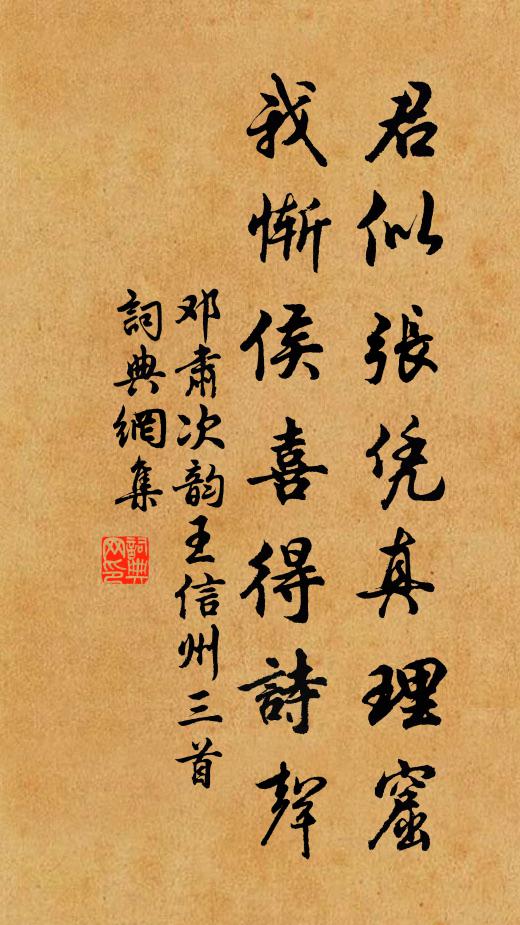 君似張凭真理窟
我惭侯喜得詩聲
邓肅次韵王信州三首
詞典網集
詞典网印